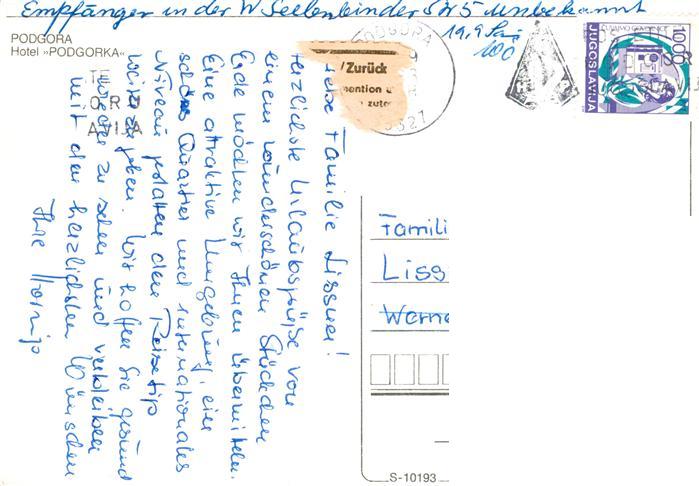 Empfänger in der W Seelenbinder Str 5 unbekannt
19.9
PODGORA
Hotel »PODGORKA«
Zurück
1000
JUGOSLAVIJA
Liebe Familie Lissner!
Herzlichste Urlaubsgrüße von
einem wunderschönen Stückchen
Erde möchten wir Ihnen übermitteln.
Eine attraktive Umgebung, ein
schönes Quartier und internationales
Niveau gestatten den Reisetip
weiterzugeben. Wir hoffen Sie gesund
wieder zu sehen und verbleiben
mit den herzlichsten Wünschen
Ihre
Famili
Liss
Werne
S-10193